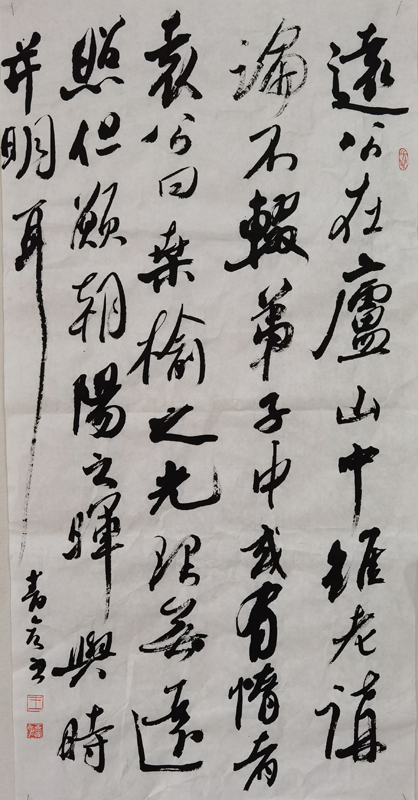 遠公在廬山中雖老講
論不輟弟子中或有惰者
袁公曰桑榆之光理無遠
照但願朝陽之暉與時
并明耳